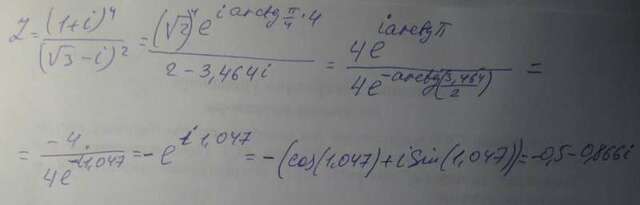 Z = \frac{(1+i)^4}{(\sqrt{3}-i)^2} = \frac{(\sqrt{2})^4 e^{i arctg \frac{\pi}{4} \cdot 4}}{2-3,464i} = \frac{4e^{i arctg \pi}}{4e^{-arctg(\frac{3,464}{2})}} =
= \frac{-4}{4e^{-i1,047}} = -e^{i1,047} = -(cos(1,047)+iSin(1,047)) = -0,5-0,866i